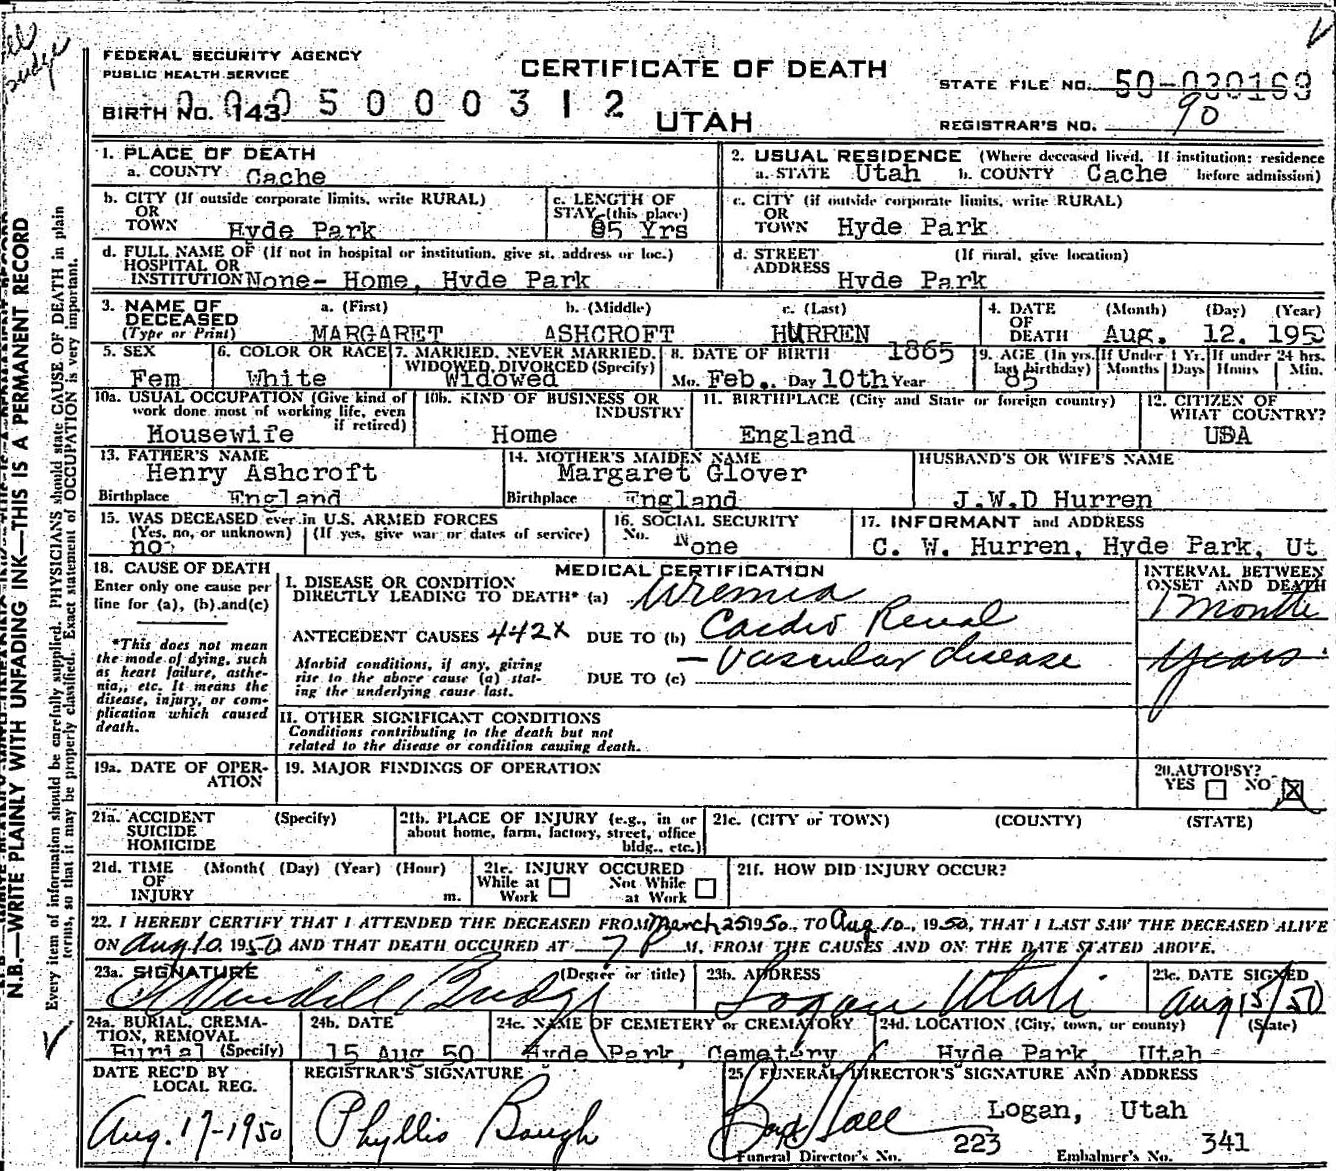 FEDERAL SECURITY AGENCY
PUBLIC HEALTH SERVICE
CERTIFICATE OF DEATH
STATE FILE NO. 50-030169
BIRTH NO. 143
0005000312
UTAH
REGISTRAR'S NO. 90
1. PLACE OF DEATH
a. COUNTY Cache
2. USUAL RESIDENCE (Where deceased lived. If institution: residence before admission)
a. STATE Utah b. COUNTY Cache
b. CITY (If outside corporate limits, write RURAL)
OR
TOWN Hyde Park
c. LENGTH OF
STAY (this place)
85 Yrs
c. CITY (if outside corporate limits, write RURAL)
OR
TOWN Hyde Park
d. FULL NAME OF (If not in hospital or institution, give st. address or loc.)
HOSPITAL OR
INSTITUTION None- Home, Hyde Park
d. STREET (If rural, give location)
ADDRESS Hyde Park
3. NAME OF DECEASED
(Type or Print)
a. (First) b. (Middle) c. (Last)
MARGARET ASHCROFT HURREN
4. DATE OF DEATH (Month) (Day) (Year)
Aug. 12. 195
5. SEX
Fem
6. COLOR OR RACE
White
7. MARRIED, NEVER MARRIED,
WIDOWED, DIVORCED (Specify)
Widowed
8. DATE OF BIRTH 1865
Mo. Feb. Day 10th Year
9. AGE (In yrs. last birthday)
85
If Under 1 Yr.
Months Days
If under 24 hrs.
Hours Min.
10a. USUAL OCCUPATION (Give kind of
work done most of working life, even
if retired)
Housewife
10b. KIND OF BUSINESS OR
INDUSTRY
Home
11. BIRTHPLACE (City and State or foreign country)
England
12. CITIZEN OF
WHAT COUNTRY?
USA
13. FATHER'S NAME
Henry Ashcroft
Birthplace England
14. MOTHER'S MAIDEN NAME
Margaret Glover
Birthplace England
HUSBAND'S OR WIFE'S NAME
J.W.D Hurren
15. WAS DECEASED ever in U.S. ARMED FORCES
(Yes, no, or unknown) (If yes, give war or dates of service)
no
16. SOCIAL SECURITY
No. None
17. INFORMANT and ADDRESS
C. W. Hurren, Hyde Park, Ut
18. CAUSE OF DEATH
Enter only one cause per
line for (a), (b) and (c)
*This does not mean
the mode of dying, such
as heart failure, asthe-
nia, etc. It means the
disease, injury, or com-
plication which caused
death.
MEDICAL CERTIFICATION
INTERVAL BETWEEN
ONSET AND DEATH
I. DISEASE OR CONDITION
DIRECTLY LEADING TO DEATH* (a) Uremia
1 month
ANTECEDENT CAUSES 442X DUE TO (b) Cardio Renal
- Vascular disease
years
Morbid conditions, if any, giving
rise to the above cause (a) stat-
ing the underlying cause last.
DUE TO (c)
II. OTHER SIGNIFICANT CONDITIONS
Conditions contributing to the death but not
related to the disease or condition causing death.
19a. DATE OF OPER-
ATION
19. MAJOR FINDINGS OF OPERATION
20. AUTOPSY?
YES NO X
21a. ACCIDENT (Specify)
SUICIDE
HOMICIDE
21b. PLACE OF INJURY (e.g., in or
about home, farm, factory, street, office
bldg., etc.)
21c. (CITY or TOWN) (COUNTY) (STATE)
21d. TIME (Month( (Day) (Year) (Hour)
OF
INJURY m.
21e. INJURY OCCURED
While at Work Not While at Work
21f. HOW DID INJURY OCCUR?
22. I HEREBY CERTIFY THAT I ATTENDED THE DECEASED FROM March 25 1950, TO Aug 10, 1950, THAT I LAST SAW THE DECEASED ALIVE
ON Aug 10 1950 AND THAT DEATH OCCURED AT 7 P M. FROM THE CAUSES AND ON THE DATE STATED ABOVE.
23a. SIGNATURE (Degree or title)
Wendell Budge
23b. ADDRESS
Logan Utah
23c. DATE SIGNED
Aug 15/50
24a. BURIAL, CREMA-
TION, REMOVAL
Burial (Specify)
24b. DATE
15 Aug 50
24c. NAME OF CEMETERY or CREMATORY
Hyde Park, Cemetery
24d. LOCATION (City, town, or county) (State)
Hyde Park, Utah
DATE REC'D BY
LOCAL REG.
Aug. 17-1950
REGISTRAR'S SIGNATURE
Phyllis Baugh
25. FUNERAL DIRECTOR'S SIGNATURE AND ADDRESS
Hall
Logan, Utah
Funeral Director's No. 223 Embalmer's No. 341
N.B.—WRITE PLAINLY WITH UNFADING INK—THIS IS A PERMANENT RECORD
Every item of information should be carefully supplied. PHYSICIANS should state CAUSE OF DEATH in plain
terms, so that it may be properly classified. Exact statement of OCCUPATION is very important.